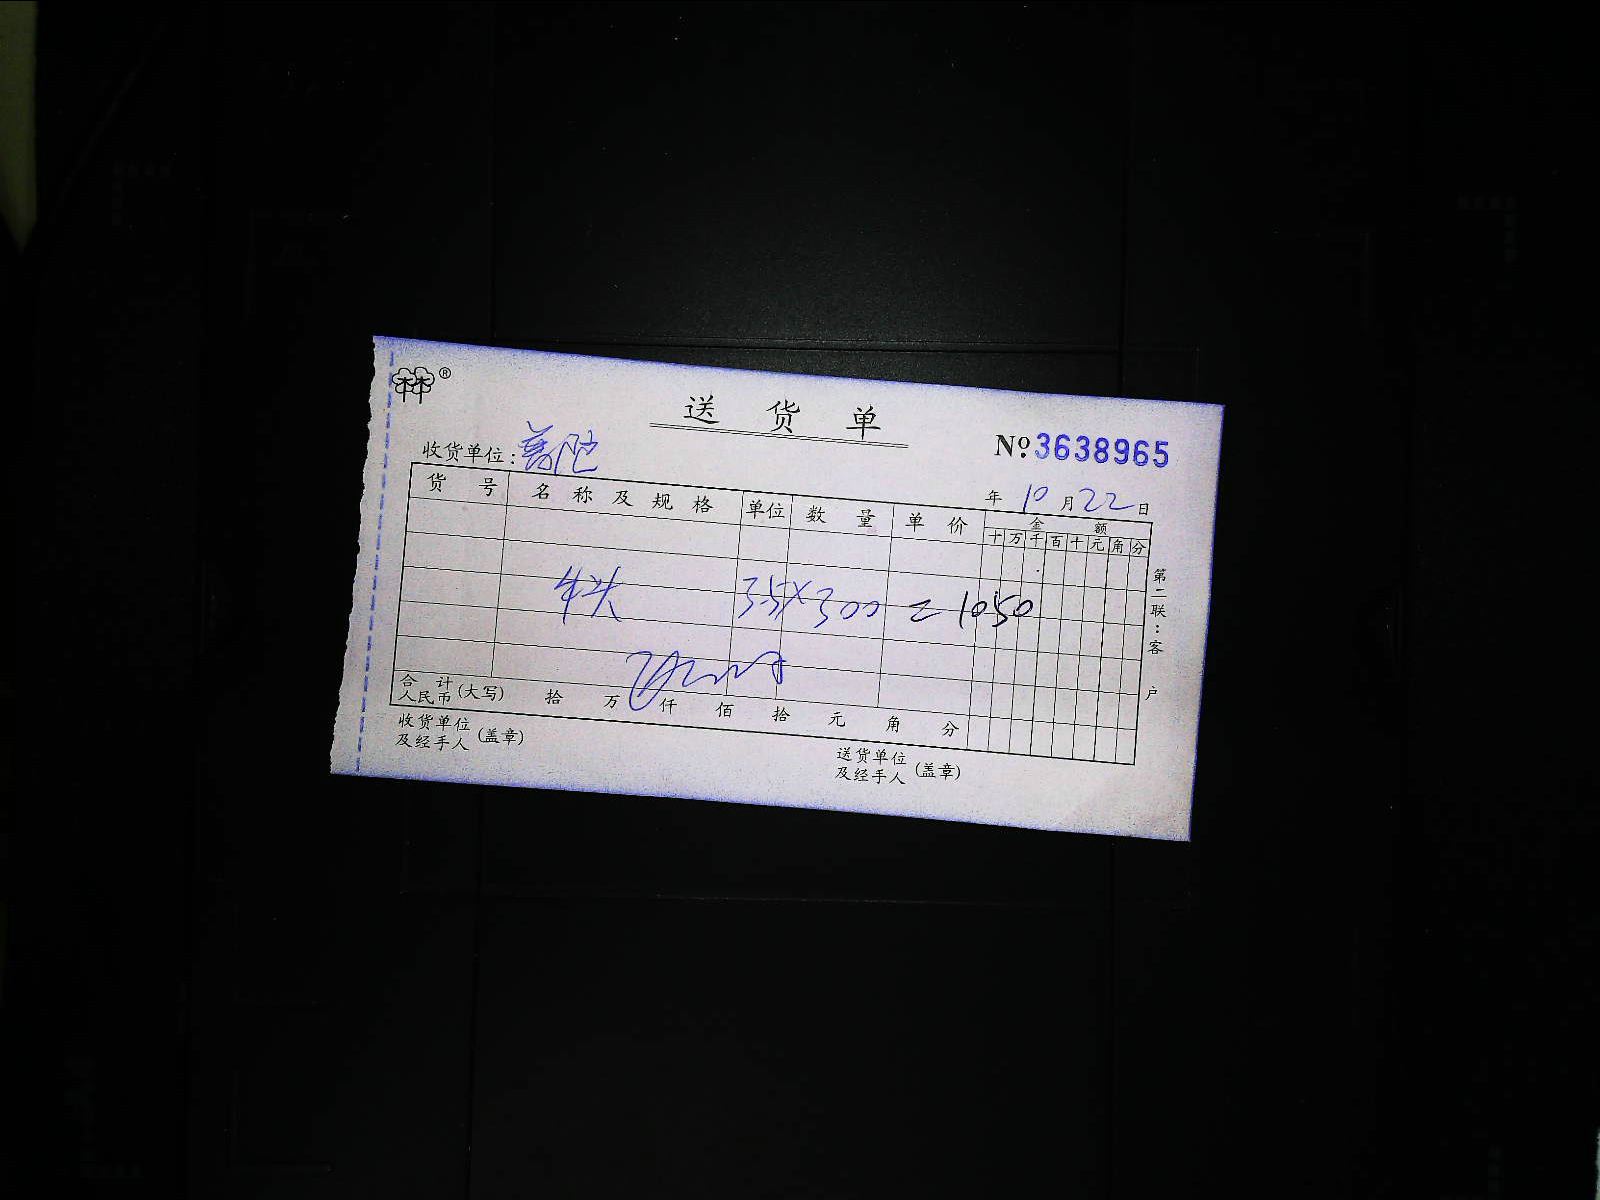 林®
送货单
№ 3638965
收货单位: 普陀
年 10 月 22 日
货号 名称及规格 单位 数量 单价 金额
十 万 千 百 十 元 角 分
牛头 3.5 X 300 = 1050
合计
人民币 (大写) 拾 万 仟 佰 拾 元 角 分
收货单位
及经手人 (盖章)
送货单位
及经手人 (盖章)
第二联:客户